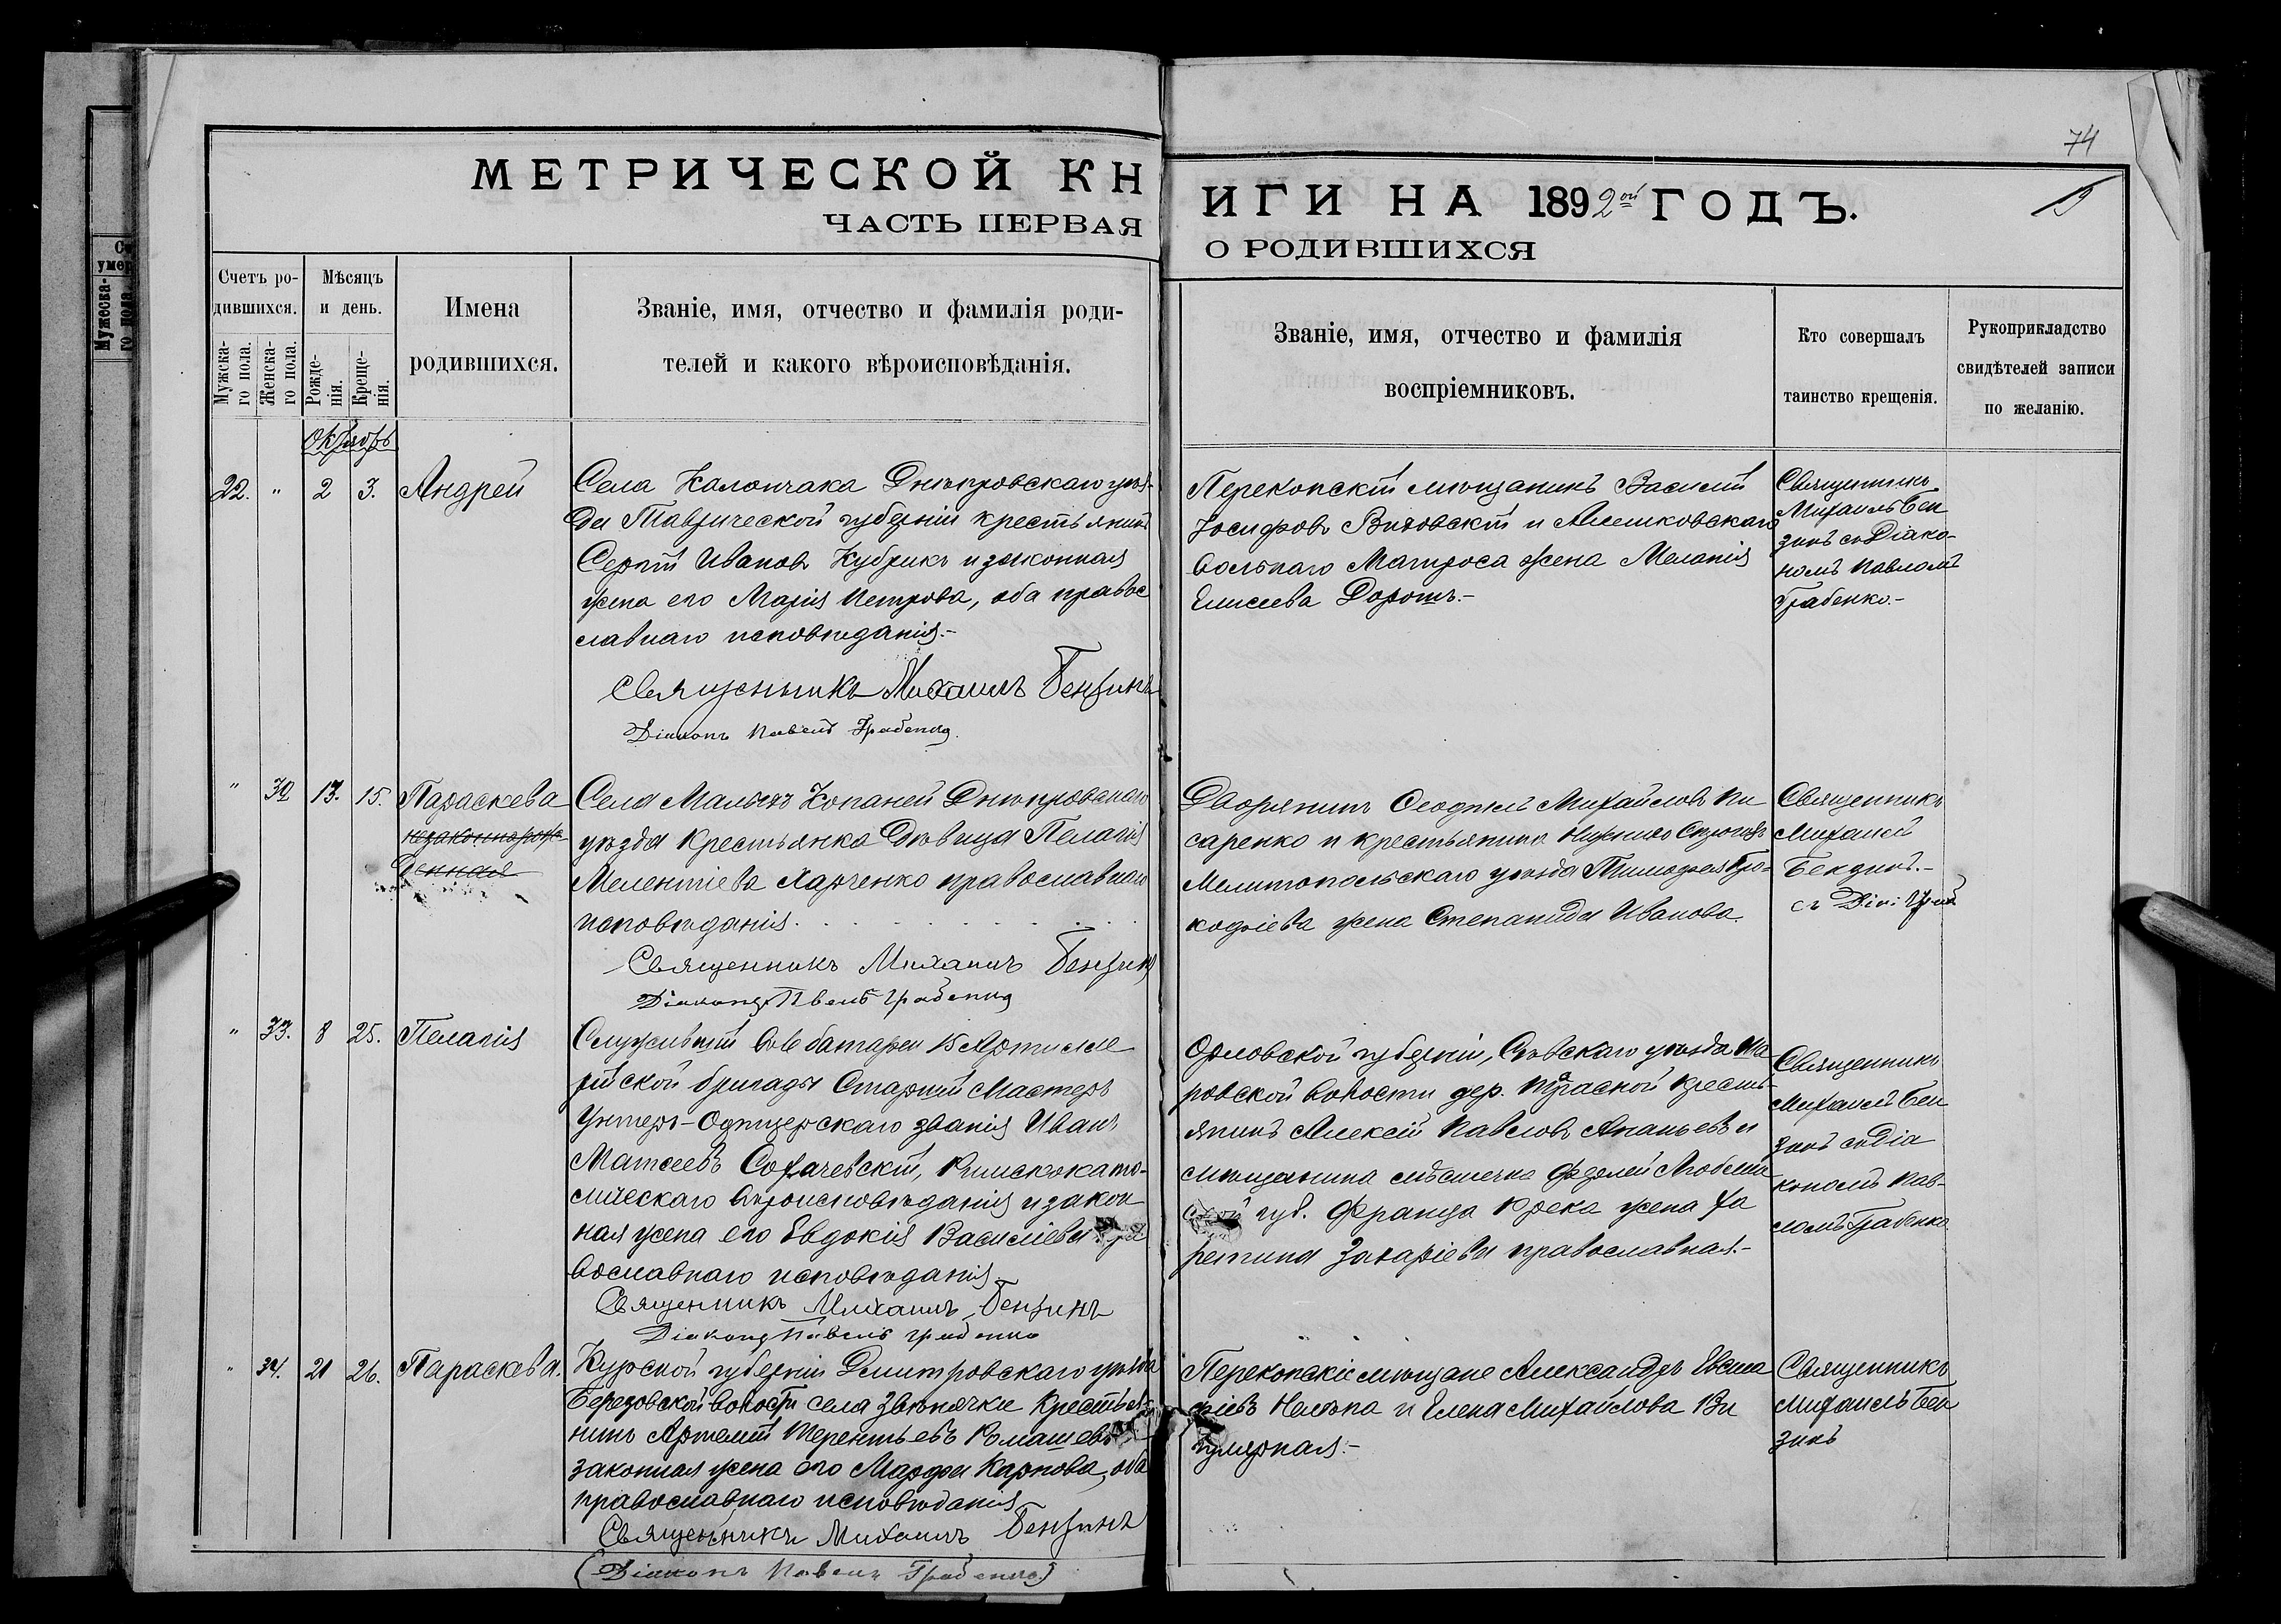 74
МЕТРИЧЕСКОЙ КНИГИ НА 1892ой ГОДЪ.
ЧАСТЬ ПЕРВАЯ О РОДИВШИХСЯ
Счетъ ро-
дившихся.
Мужска-
го пола.
Женска-
го пола.
Мѣсяцъ
и день.
Рожде-
нія.
Креще-
нія.
Имена
родившихся.
Званіе, имя, отчество и фамилія роди-
телей и какого вѣроисповѣданія.
Званіе, имя, отчество и фамилія
воспріемниковъ.
Кто совершалъ
таинство крещенія.
Рукоприкладство
свидѣтелей записи
по желанію.
Октябрь
22. " 2 3. Андрей
Села Каланчака Днѣпровскаго уѣз-
да Таврической губерніи крестьянинъ
Сергій Ивановъ Кубрикъ и законная
жена его Марія Петрова, оба правос
лавнаго исповѣданія.-
Священникъ Михаилъ Бензинъ
Діаконъ Павелъ Грабенко.
Перекопскій мѣщанинъ Василій
Іосифовъ Витовскій и Алешковскаго
вольнаго Матроса жена Меланія
Елисеева Дорошъ.-
Священникъ
Михаилъ Бен
зинъ съ Діако-
номъ Павломъ
Грабенко.-
" 32 13. 15. Параскева
незаконнорож-
денная
Села Малыхъ Копаней Днѣпровскаго
уѣзда Крестьянка Дѣвица Пелагія
Мелентіева Харченко православнаго
исповѣданія.
Священникъ Михаилъ Бензинъ
Діаконъ Павелъ Грабенко
Дворянинъ Михайловъ Пи
саренко и крестьянина
Мелитопольскаго уѣзда Тимофея Про-
кофіева жена Степанида Иванова
Священникъ
Михаилъ
Бензинъ.-
съ Діа:
" 33. 8 25. Пелагія
Служившій батареи 15 Артилле
рійской бригады Старшій Мастеръ
Унтеръ-Офицерскаго званія Иванъ
Матѳеевъ Сохачевскій, Римскокато-
лическаго вѣроисповѣданія и закон
ная жена его Евдокія Василіева пра
вославнаго исповѣданія
Священникъ Михаилъ Бензинъ
Діаконъ Павелъ Грабенко
Орловской губерніи, Сѣвскаго уѣзда
ровской волости дер. кресть-
янинъ Алексѣй Павловъ Ананьевъ и
мѣщанина мѣстечка
губ. Франца Крека жена Ха
ритина Захаріева православная.-
Священникъ
Михаилъ Бен
зинъ съ Діа
кономъ Пав-
ломъ Грабенко
" 34. 21 26. Параскева.
Курской губерніи Дмитровскаго уѣзда
Березовской волости села Звѣнячки Крестья-
нинъ Артемій Терентьевъ Ромашевъ
законная жена его Марфа Карпова, оба
православнаго исповѣданія
Священникъ Михаилъ Бензинъ
(Діаконъ Павелъ Грабенко)
Перекопскіе мѣщане Александръ
и Елена Михайлова
Священникъ
Михаилъ Бен
зинъ